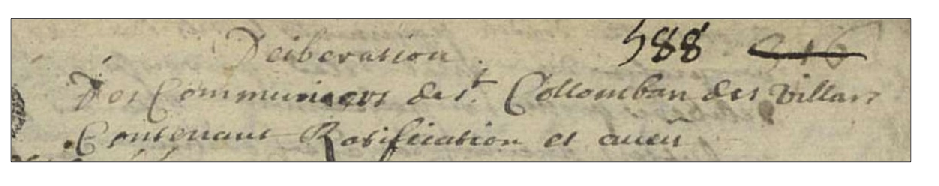 Deiberation 588 346
Des Communiers de st. Collomban des Villars
Contenant Ratification et aueu